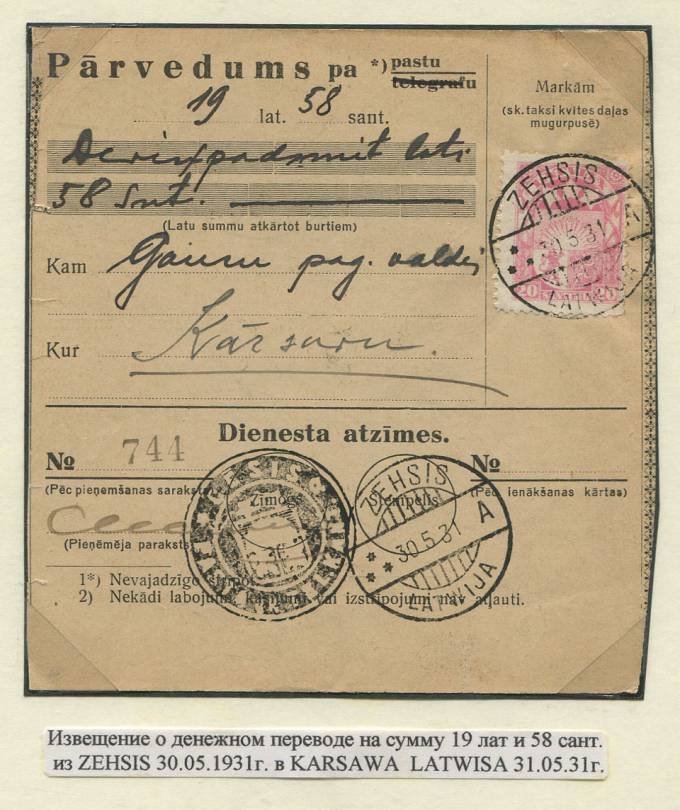 Pārvedums pa *) pastu
telegrafu
19 lat. 58 sant.
58 snt.
(Latu summu atkārtot burtiem)
Kam pag. valdei
Kur Kārsavu.
Markām
(sk. taksi kvītes daļas
mugurpusē)
ZEHSIS
A
30 5 31
LATWIJA
20 20
Dienesta atzīmes.
№ 744
(Pēc pieņemšanas saraksta)
(Pieņēmēja paraksts)
Zīmogs
ZEHSIS
Stempelis
A
30 5 31
LATWIJA
№
(Pēc ienākšanas kārtas)
1*) Nevajadzīgo
2) Nekādi labojumi, kasījumi vai izstrīpojumi nav atļauti.
Извещение о денежном переводе на сумму 19 лат и 58 сант.
из ZEHSIS 30.05.1931г. в KARSAWA LATWISA 31.05.31г.